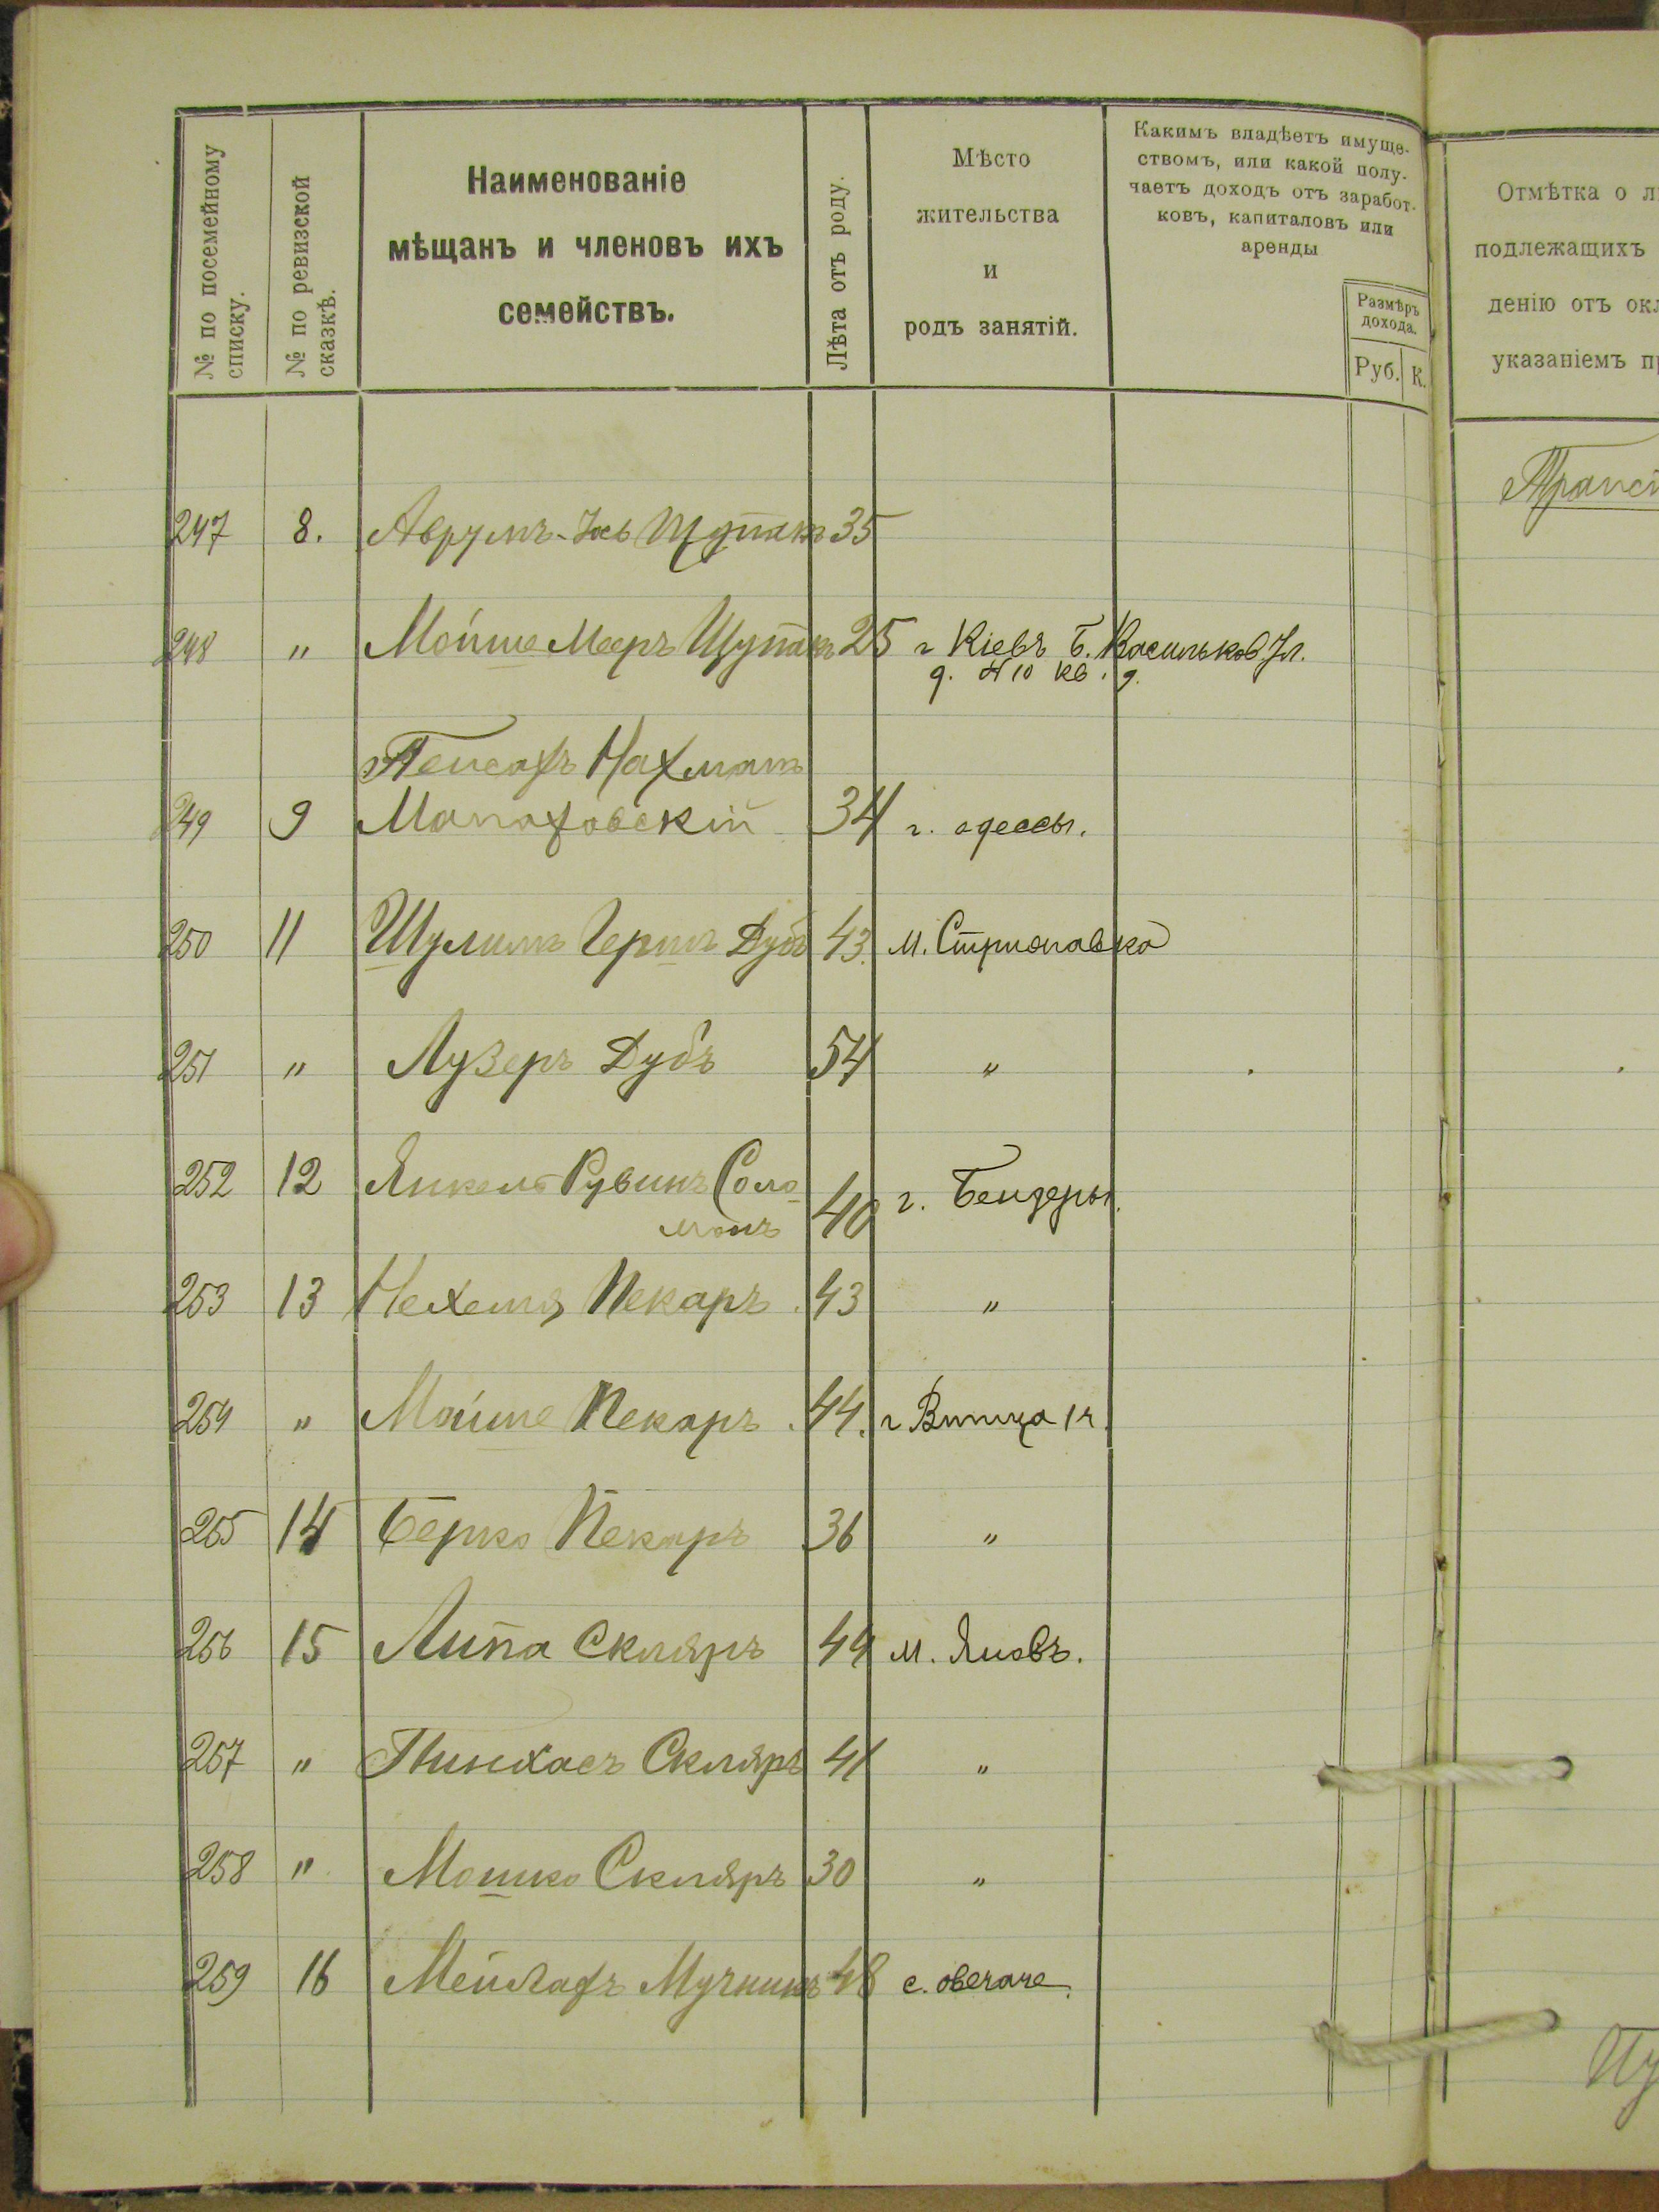 № по посемейному
списку.
№ по ревизской
сказкѣ.
Наименованіе
мѣщанъ и членовъ ихъ
семействъ.
Лѣта отъ роду.
Мѣсто
жительства
и
родъ занятій.
Какимъ владѣетъ имуще-
ствомъ, или какой полу-
чаетъ доходъ отъ заработ-
ковъ, капиталовъ или
аренды
Размѣръ
дохода.
Руб. К.
Отмѣтка о
подлежащихъ
денію отъ
указаніемъ
247 8. Аврумъ-Іось Щупакъ 35
248 " Мойше Мееръ Щупакъ 25 г Кіевъ Б. Васильков Ул.
д. № 10 кв. 9.
Пейсахъ Нахманъ
249 9 Малаховскій 34 г. одессы.
250 11 Шулимъ Гершъ Дубъ 43. м. Стрижавка
251 " Лузеръ Дубъ 54 "
252 12 Янкель Рувинъ Соло-
монъ 40 г. Бендеры.
253 13 Нехемя Пекаръ. 43 "
254 " Мойше Пекаръ. 44. г Виница 1 ч.
255 14 Берко Пекаръ 36 "
256 15 Липа Скляръ 44 м. Яновъ.
257 " Пинхасъ Скляръ 41 "
258 " Мошко Скляръ 30 "
259 16 Мейлахъ Мучникъ 48 с. овечаче.